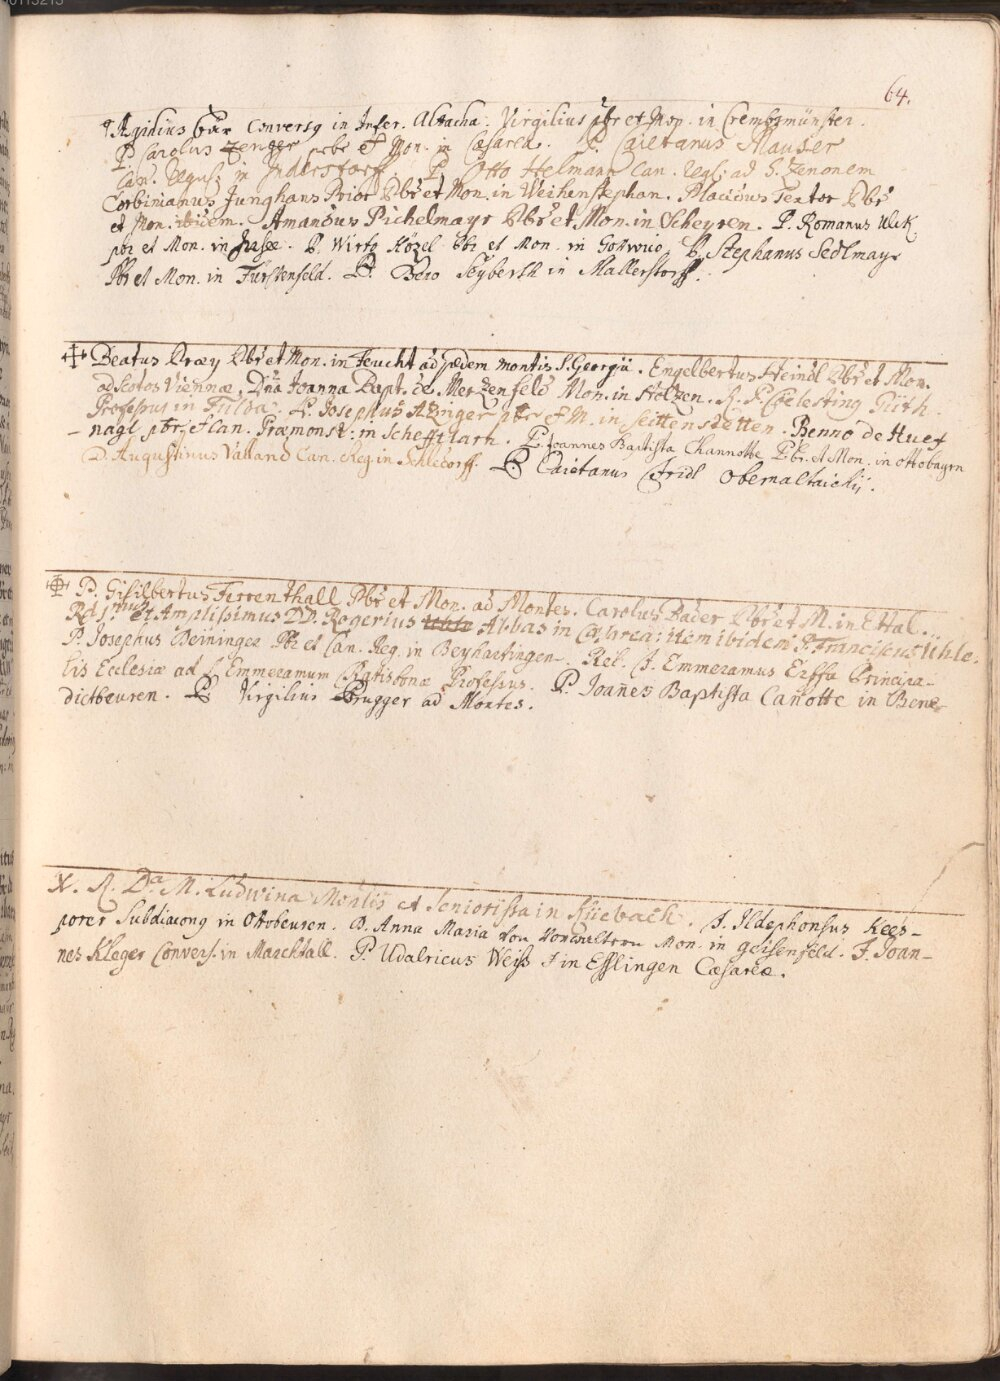 64.
Ægidius Gür Conversq in Infer. Altacha. Virgilius pbr et Mon. in Crembsmünster.
P. Carolus Zenger pbr et Mon. in Cæsarea. P. Caietanus Mauser
Can. Regul: in Inderstorf. P. Otto Helmann Can. Regl: ad S. Zenonem
Corbinianus Junghans Prior Pbr et Mon. in Weihenstephan. Placidus Textor Pbr
et Mon. ibidem. Amandus Pichelmayr Pbr et Mon. in Scheyren. P. Romanus
pbr et Mon. in Irsee. P. Wirto Közel Pbr et Mon. in Gottwic. P. Stephanus Sedlmayr
Pbr et Mon. in Fürstenfeld. P. Beda Seyberth in Mallerstorff.
Beatus Bræy Pbr et Mon. in Feucht ad pædem montis S. Georgii. Engelbertus Heindl Pbr et Mon.
ad Scotos Viennæ. Dna Joanna Bapt. de Merzenfeld Mon. in Holtzen. R. P. Cœlestinq Güth
Professus in Fulda. P. Josephus Azinger pbr et M. in Seittenstetten. Benno de Huef
nagl pbr et Can. Præmonst: in Schefftlarn. P. Joannes Baptista Channotte Pbr. et Mon. in Ottobayrn
D. Augustinus Valland Can. Reg. in Schledorff. P. Caietanus Fridl Obernaltaichij.
P. Gisilbertus Ferrenthall Pbr et Mon. ad Montes. Carolus Bader Pbr et M. in Ettal.
Rdismus et Amplissimus D D. Rogerius Uhle Abbas in Cæsarea: item ibidem P. Franciscus Uhle.
P. Josephus Beininger Pbr et Can. Reg. in Beyhartingen. Rel. F. Emmeramus Erffa Principa-
lis Ecclesiæ ad S. Emmeramum Ratisbonæ Professus. P. Joañes Baptista Cañotte in Bene-
dictbeuren. P. Virgilius Brugger ad Montes.
X. R. Da M. Ludwina Monlis et Seniorissa in Küebach. F. Ildephonsus Kees-
porer Subdiaconq in Ottobeuren. D. Anna Maria von Vorwaltern Mon. in Geisenfeld. F. Joan-
nes Kleger Convers. in Marchtall. P. Udalricus Weiss + in Esslingen Cæsareæ.